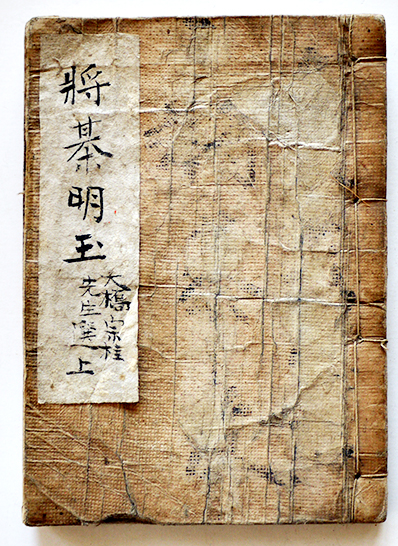 將棊明玉
大橋宗桂
先生選 上